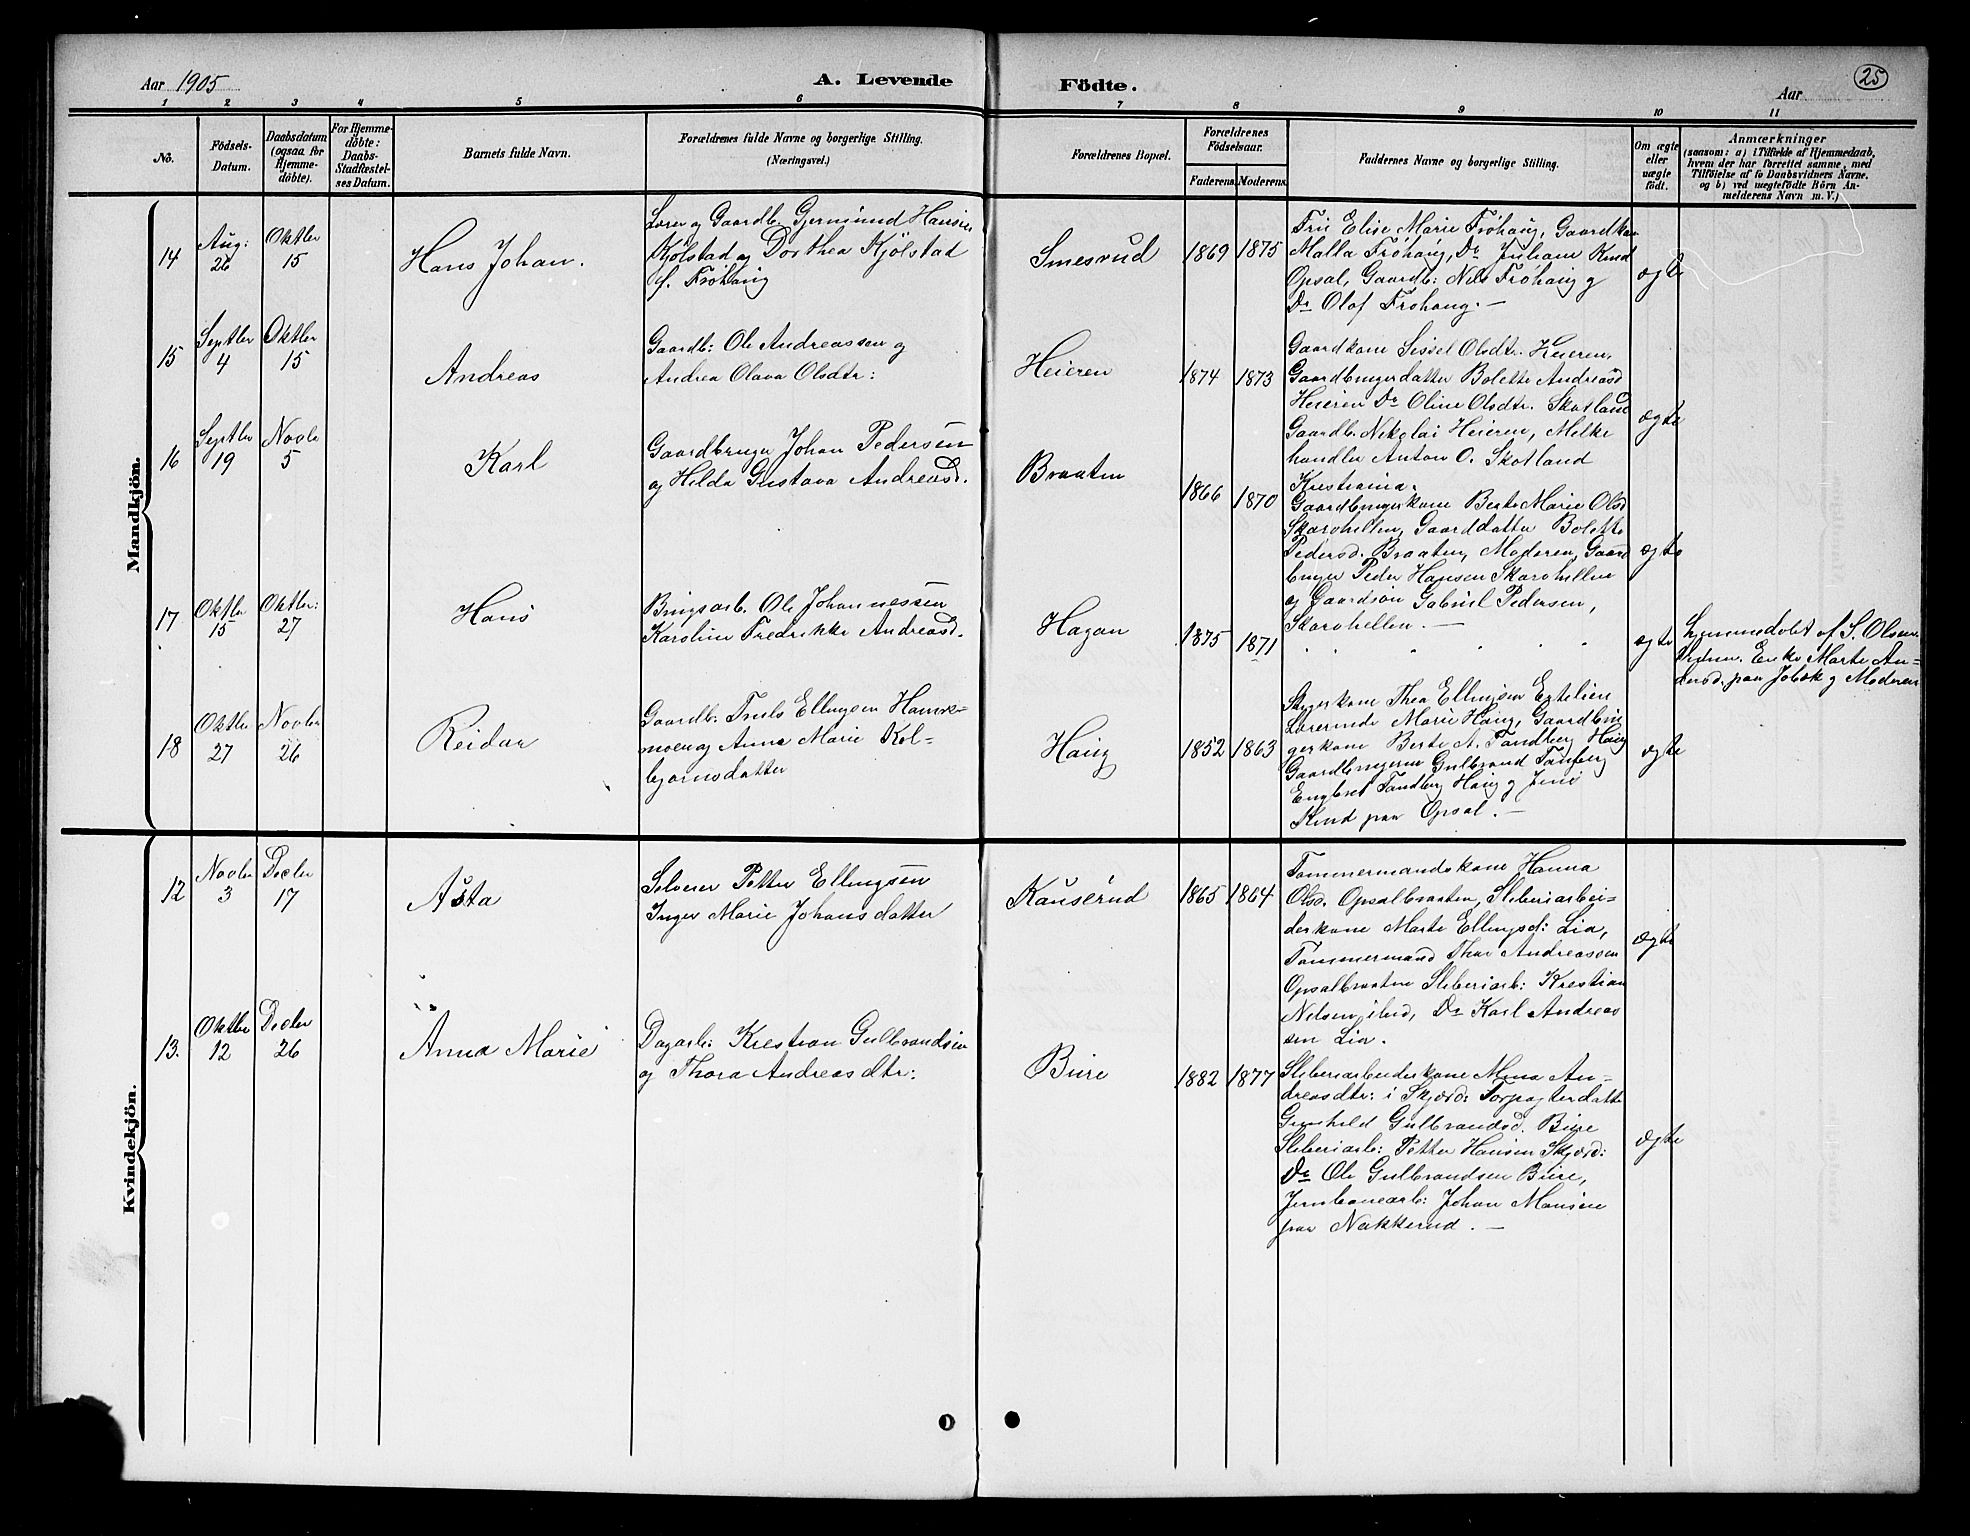 Aar 1905
A. Levende
Födte.
Aar
25
1 2 3 4 5 6 7 8 9 10 11
No.
Födsels-
Datum.
Daabsdatum
(ogsaa for
Hjemme-
döbte).
For Hjemme-
döbte:
Daabs-
Stadfæstel-
ses Datum.
Barnets fulde Navn.
Forældrenes fulde Navne og borgerlige Stilling.
(Næringsvei.)
Forældrenes Bopæl.
Forældrenes
Födselsaar.
Faderens. Moderens.
Faddernes Navne og borgerlige Stilling.
Om ægte
eller
uægte
födt.
Anmærkninger
(saasom: a) i Tilfælde af Hjemmedaab,
hvem der har forrettet samme, med
Tilföielse af to Daabsvidners Navne.
og b) ved uægtefödte Börn An-
melderens Navn m. V.)
Mandkjön.
14
Aug:
26
Oktbr
15
Hans Johan.
Lærer og Gaardb. Gjermund Hansen
Kjölstad og Dorthea Kjölstad
f. Fröhaug
Smesrud
1869 1875
Fru Elise Marie Fröhaug, Gaardkone
Malla Fröhaug, Do Juliane Rud
Opsal, Gaardb: Nils Fröhaug og
Do Olof Fröhaug. —
ægte
15
Septbr
4
Oktbr
15
Andreas
Gaardb: Ole Andreassen og
Andrea Olava Olsdtr:
Heieren
1874 1873
Gaardkone Sissel Olsdtr. Heieren,
Gaardbrugerdatter Bolette Andreasd
Heieren Do Oline Olsdtr. Skotland
Gaardb. Nikolai Heieren, Melke
handler Anton O. Skotland
Kristiania.
ægte
16
Septbr
19
Novbr
5
Karl
Gaardbruger Johan Pedersen
og Hilda Gustava Andreasd.
Braaten
1866 1870
Gaardbrugerkone Berte Marie Olsd
Skarohellen, Gaarddatter Bolette
Pedersd. Braaten, Moderen, Gaard
bruger Peder Hansen Skarohellen
og Gaardsön Gabriel Pedersen,
Skarohellen. —
ægte
17
Oktbr
15
Oktbr:
27
Hans
Brugsarb. Ole Johannessen
Karoline Fredrikke Andreasd.
Hagan
1875 1871
ægte
hjemmedöbt af S. Olsen
Enke Marte An-
dersd. paa Jobak og Moderen
18
Oktbr
27
Novbr
26
Reidar
Gaardb: Truls Ellingsen Hamre-
moen og Anna Marie Kol-
bjørnsdatter
Haug
1852 1863
Thea Ellingsen
Lærerinde Marie Haug, Gaardbru
gerkone Berte A. Tandberg Haug
Gaardbrugerne Gulbrand Tanberg
Engebret Tandberg Haug og Jens
Rud paa Opsal. —
ægte
Kvindekjön.
12
Novbr
3
Decbr
17
Åsta
Selveier Petter Ellingsen
Inger Marie Johansdatter
Kauserud
1865 1864
Tömmermandskone Hanna
Olsd. Opsalbraaten, Sliberiarbei-
derkone Marte Ellingsd: Lia,
Tömmermand Thor Andreassen
Opsalbraaten Sliberiarb: Kristian
Nelsen ibid, Do Karl Andreas
sen Lia.
ægte
13.
Oktbr
12
Decbr
26
Anna Marie
Dagarb: Krestian Gulbrandsen
og Thora Andreasdtr:
Bure
1882 1877
Sliberiarbeiderkone Mina An-
dreasdtr: i Skjærd: Forpagterdatter
Gunhild Gulbrandsd. Bure
Sliberiarb: Petter Hansen Skjærd:
Do Ole Gulbrandsen Bure,
Jernbanearb: Johan Monsen
paa Nakkerud. —
ægte